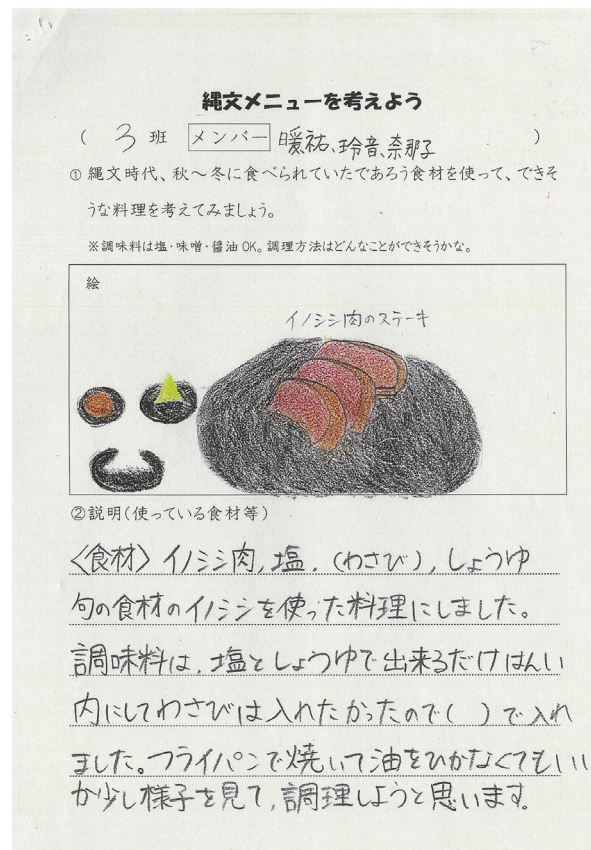 縄文メニューを考えよう
( 3 班 メンバー 暖祐、玲音、奈那子 )
① 縄文時代、秋～冬に食べられていたであろう食材を使って、できそ
うな料理を考えてみましょう。
※調味料は塩・味噌・醤油OK。調理方法はどんなことができそうかな。
絵
イノシシ肉のステーキ
②説明(使っている食材等)
〈食材〉イノシシ肉,塩,(わさび),しょうゆ
旬の食材のイノシシを使った料理にしました。
調味料は、塩としょうゆで出来るだけはんい
内にしてわさびは入れたかったので( )で入れ
ました。フライパンで焼いて油をひかなくてもいい
か少し様子を見て,調理しようと思います。